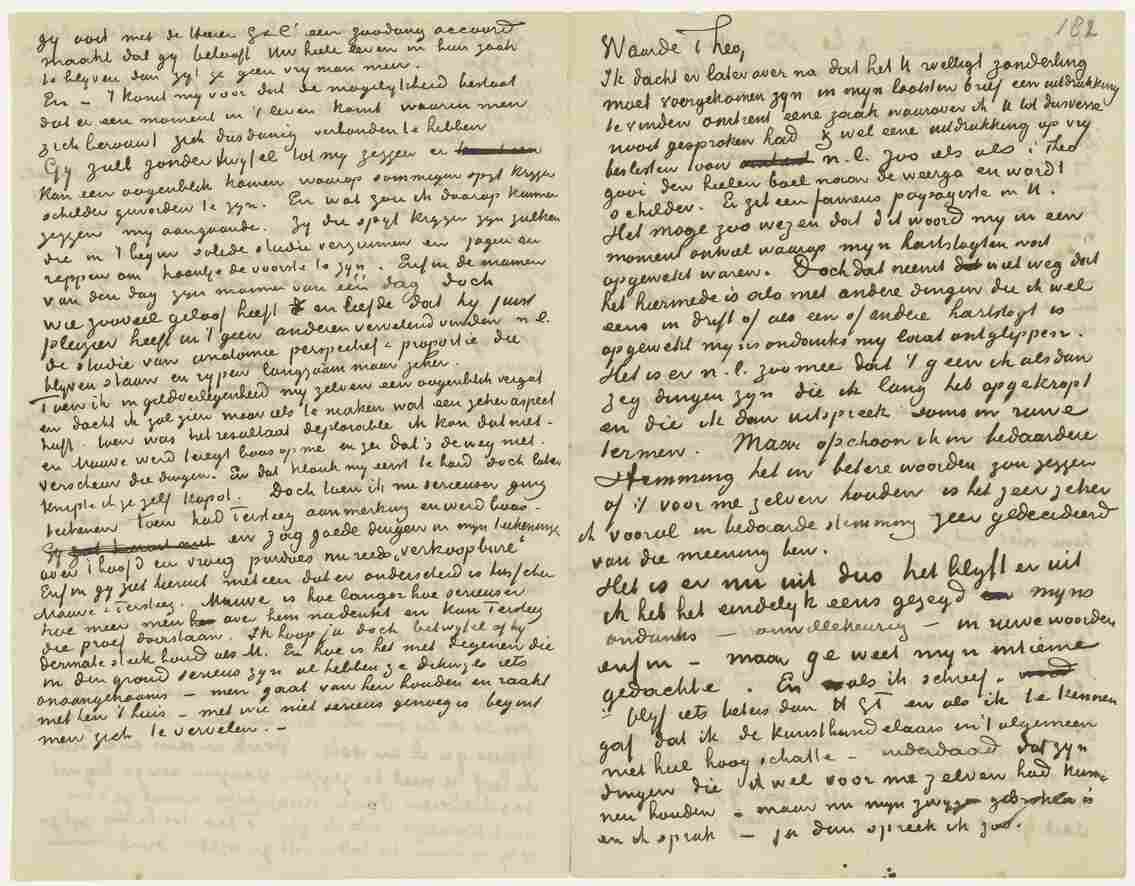 gy ooit met de Heeren G&Cie een zoodanig accoord
maakt dat gy belooft Uw heele leven in hun zaak
te blyven dan zyt ge geen vry man meer.
En – 't komt my voor dat de mogelykheid bestaat
dat er een moment in 't leven komt waarin men
zich berouwt zich dusdanig verbonden te hebben
Gy zult zonder twyfel tot my zeggen er
kan een oogenblik komen waarop sommigen spyt krygen
schilder geworden te zyn. En wat zou ik daarop kunnen
zeggen my aangaande. Zy die spyt krygen zyn zulken
die in 't begin solide studie verzuimen en jagen en
reppen om haantje de voorste te zyn. Enfin de mannen
van den dag zyn mannen van één dag doch
wie zooveel geloof heeft & en liefde dat hy juist
pleizier heeft in 't geen anderen vervelend vinden n.l.
de studie van anatomie perspectief & proportie die
blyven staan en rypen langzaam maar zeker.
Toen ik in geldverlegenheid my zelven een oogenblik vergat
en dacht ik zal zien maar iets te maken wat een zeker aspect
heeft. toen was het resultaat deplorabele ik kon dat niet –
en Mauve werd teregt boos op me en zei dat's de weg niet.
verscheur die dingen. En dat klonk my eerst te hard doch later
knipte ik ze zelf kapot. Doch toen ik nu serieuser ging
teekenen toen had Tersteeg aanmerking en werd boos –
en zag goede dingen in myn teekeningen
over 't hoofd en vroeg pardies nu reeds „verkoopbare"
Enfin gy ziet hieruit meteen dat er onderscheid is tusschen
Mauve & Tersteeg. Mauve is hoe langer hoe serieuser
hoe meer men over hem nadenkt en kan Tersteeg
die proef doorstaan. Ik hoop ja doch betwyfel of hy
dermate steek houd als M. En hoe is het met degenen die
in den grond serieus zyn al hebben ze dikwyls iets
onaangenaams – men gaat van hen houden en raakt
met hen 't huis – met wie niet serieus genoeg is begint
men zich te vervelen. –
182
Waarde Theo,
Ik dacht er later over na dat het U welligt zonderling
moet voorgekomen zyn in myn laatsten brief een uitdrukking
te vinden omtrent eene zaak waarover ik U tot dusverre
nooit gesproken had & wel eene uitdrukking op vry
beslisten toon n.l. zoo iets als „Theo
gooi den heelen boel naar de weerga en wordt
schilder. Er zit een fameus paysagiste in U.
Het moge zoo wezen dat dit woord my in een
moment ontviel waarop myn hartstogten wat
opgewekt waren. Doch dat neemt niet weg dat
het hiermede is als met andere dingen die ik wel
eens in drift of als een of andere hartstogt is
opgewekt my in ondanks my laat ontglippen.
Het is er n.l. zoo mee dat 't geen ik als dan
zeg dingen zyn die ik lang heb opgekropt
en die ik dan uitspreek soms in ruwe
termen. Maar ofschoon ik in bedaardere
stemming het in betere woorden zou zeggen
of 't voor me zelven houden is het zeer zeker
ik vooral in bedaarde stemming zeer gedecideerd
van die meening ben.
Het is er nu uit dus het blyft er uit
ik heb het eindelyk eens gezegd myns
ondanks – onwillekeurig – in ruwe woorden
enfin – maar ge weet myn intieme
gedachte. En als ik schreef „
„blyf iets beters dan HGT en als ik te kennen
gaf dat ik de kunsthandelaars in 't algemeen
niet heel hoog schatte – inderdaad dat zyn
dingen die ik wel voor me zelven had kun-
nen houden – maar nu myn zwygen gebroken is
en ik sprak – ja dan spreek ik zoo.